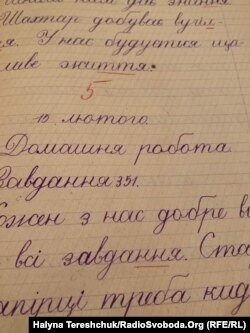 Шахтар добуває вугіл-
ля. У нас будуатися ща-
ливе життя.
5
10 лютого.
Домашня робота
Завдання 351.
Кожан з нас добре в
всі завдання. Ста
папірці треба кид
Halyna Tereshchuk/RadioSvoboda.Org (RFE/RL)